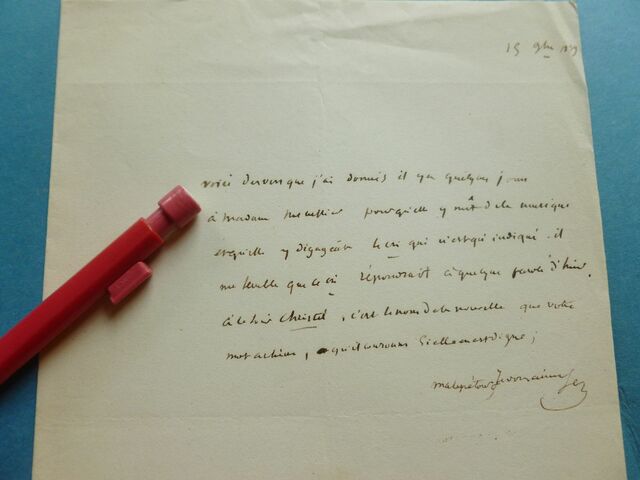 15 9bre 1839
voici des vers que j'ai donnés il y a quelques jours
à madame pour qu'elle y mît de la musique
et qu'elle y dégageât le cri qui n'est qu'indiqué. il
me semble que ce cri répondrait à quelque parole d'hier.
à ce soir Christel, c'est le nom de la nouvelle que votre
mot achève, et qu'il couronne si elle en est digne;